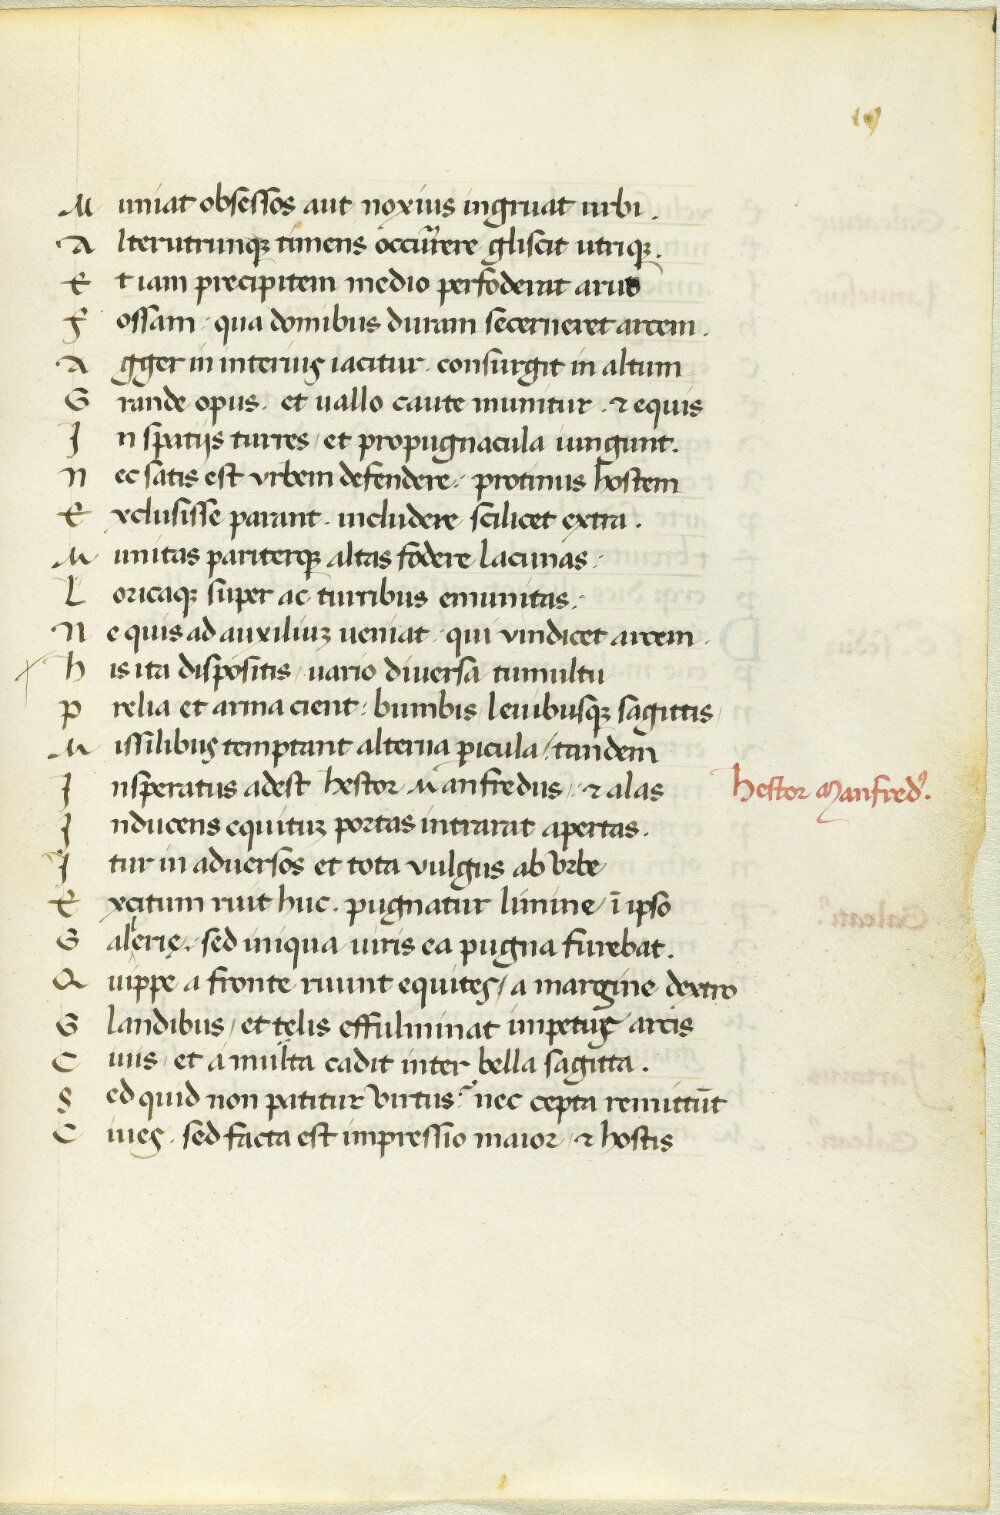 19
Muniat obsessos aut noxius ingruat urbi.
Alterutrunqꝫ timens occurrere gliscit utriqꝫ.
Et iam precipitem medio perfoderat aruo
Fossam · qua domibus duram secerneret arcem.
Agger in interius iacitur · consurgit in altum
Grande opus · et uallo caute munitur · & equis
In spatijs turres / et propugnacula iungunt.
Nec satis est vrbem defendere · protinus hostem
Exclusisse parant · includere scilicet extra.
Munitas pariterqꝫ altas fodere lacunas ·
Loricaqꝫ super ac turribus emunitas ·
Ne quis ad auxiliuꝫ ueniat · qui vindicet arcem
His ita dispositis / uario diuersa tumultu
Prelia et arma cient · bumbis / leuibusqꝫ sagittis /
Missilibus temptant alterna ꝑicula / tandem
Insperatus adest hestor Manfredus / & alas
hestor Manfredꝰ.
Inducens equituꝫ portas intrarat apertas.
Itur in aduersos et tota vulgus ab vrbe
Excitum ruit huc · pugnatur limine / ī ipso
Galerię · sed iniqua uiris ea pugna furebat.
Quippe a fronte ruunt equites / a margine dextro
Glandibus / et telis effulminat impetus arcis
Ciuis / et a multa cadit inter bella sagitta.
Sed quid non patitur virtus? nec cepta remittūt
Ciues · sed facta est impressio maior / & hostis